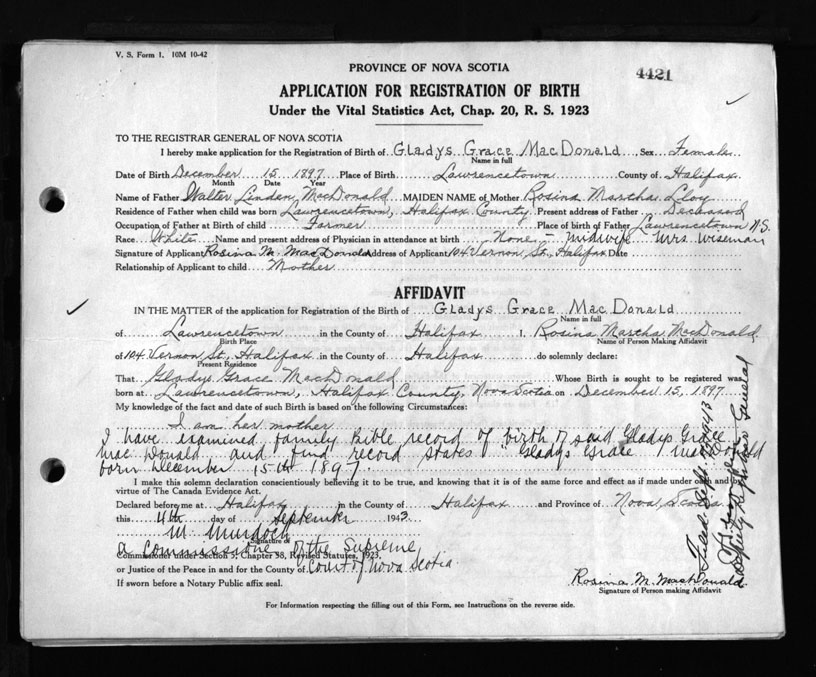 V. S. Form 1. 10M 10-42
PROVINCE OF NOVA SCOTIA
4421
APPLICATION FOR REGISTRATION OF BIRTH
Under the Vital Statistics Act, Chap. 20, R. S. 1923
TO THE REGISTRAR GENERAL OF NOVA SCOTIA
I hereby make application for the Registration of Birth of Gladys Grace MacDonald Sex Female
Name in full
Date of Birth December 15 1897 Place of Birth Lawrencetown County of Halifax
Month Date Year
Name of Father Walter Linden MacDonald MAIDEN NAME of Mother Rosina Marcha Lloy
Residence of Father when child was born Lawrencetown, Halifax County Present address of Father Deceased
Occupation of Father at Birth of child Farmer Place of birth of Father Lawrencetown N.S.
Race White Name and present address of Physician in attendance at birth None - midwife - Mrs Wiseman
Signature of Applicant Rosina M. MacDonald Address of Applicant 104 Vernon St., Halifax Date
Relationship of Applicant to child Mother
AFFIDAVIT
IN THE MATTER of the application for Registration of the Birth of Gladys Grace MacDonald
Name in full
of Lawrencetown in the County of Halifax I, Rosina Marcha MacDonald
Birth Place Name of Person Making Affidavit
of 104 Vernon St., Halifax in the County of Halifax do solemnly declare:
Present Residence
That Gladys Grace MacDonald Whose Birth is sought to be registered was
born at Lawrencetown, Halifax County, Nova Scotia on December 15, 1897
My knowledge of the fact and date of such Birth is based on the following Circumstances:
I am her mother
I have examined family Bible record of birth of said Gladys Grace
MacDonald and find record states "Gladys Grace MacDonald
born December 15th 1897.
I make this solemn declaration conscientiously believing it to be true, and knowing that it is of the same force and effect as if made under oath and by
virtue of The Canada Evidence Act.
Declared before me at Halifax in the County of Halifax and Province of Nova Scotia
this 4th day of September 1943
M Murdoch
Signature of
a Commissioner of the Supreme
Commissioner under Section 5, Chapter 38, Revised Statutes, 1923,
or Justice of the Peace in and for the County of Court of Nova Scotia.
If sworn before a Notary Public affix seal.
Rosina M. MacDonald
Signature of Person making Affidavit
For Information respecting the filling out of this Form, see Instructions on the reverse side.
Filed Sept. 1943
Deputy Registrar General